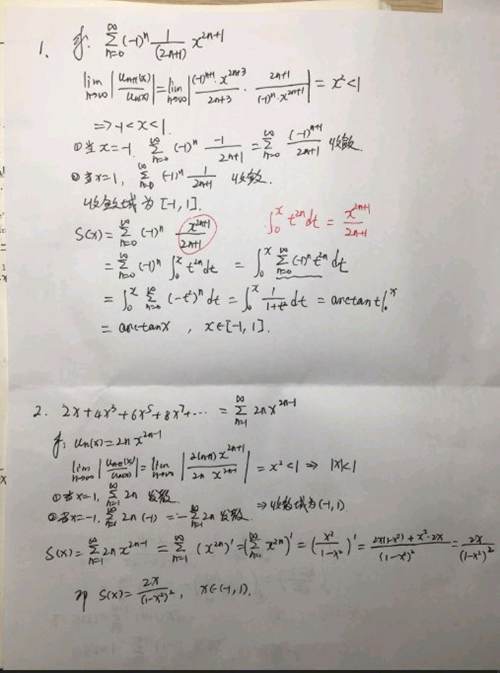 1. 解: \sum_{n=0}^{\infty} (-1)^n \frac{1}{(2n+1)} x^{2n+1}
\lim_{n\to\infty} \left| \frac{u_{n+1}(x)}{u_n(x)} \right| = \lim_{n\to\infty} \left| \frac{(-1)^{n+1} \cdot x^{2n+3}}{2n+3} \cdot \frac{2n+1}{(-1)^n \cdot x^{2n+1}} \right| = x^2 < 1
=> -1 < x < 1.
① 当 x = -1, \sum_{n=0}^{\infty} (-1)^n \frac{-1}{2n+1} = \sum_{n=0}^{\infty} \frac{(-1)^{n+1}}{2n+1} 收敛
② 当 x = 1, \sum_{n=0}^{\infty} (-1)^n \frac{1}{2n+1} 收敛.
收敛域为 [-1, 1].
S(x) = \sum_{n=0}^{\infty} (-1)^n \frac{x^{2n+1}}{2n+1} \int_0^x t^{2n} dt = \frac{x^{2n+1}}{2n+1}
= \sum_{n=0}^{\infty} (-1)^n \int_0^x t^{2n} dt = \int_0^x \sum_{n=0}^{\infty} (-1)^n t^{2n} dt
= \int_0^x \sum_{n=0}^{\infty} (-t^2)^n dt = \int_0^x \frac{1}{1+t^2} dt = arctan t |_0^x
= arctan x , x∈[-1, 1].
2. 2x + 4x^3 + 6x^5 + 8x^7 + ... = \sum_{n=1}^{\infty} 2n x^{2n-1}
解: u_n(x) = 2n x^{2n-1}
\lim_{n\to\infty} \left| \frac{u_{n+1}(x)}{u_n(x)} \right| = \lim_{n\to\infty} \left| \frac{2(n+1) x^{2n+1}}{2n x^{2n-1}} \right| = x^2 < 1 => |x| < 1
① 当 x = 1, \sum_{n=1}^{\infty} 2n 发散
② 当 x = -1, \sum_{n=1}^{\infty} 2n (-1) = -\sum_{n=1}^{\infty} 2n 发散 => 收敛域为 (-1, 1)
S(x) = \sum_{n=1}^{\infty} 2n x^{2n-1} = \sum_{n=1}^{\infty} (x^{2n})' = (\sum_{n=1}^{\infty} x^{2n})' = (\frac{x^2}{1-x^2})' = \frac{2x(1-x^2) + x^2 \cdot 2x}{(1-x^2)^2} = \frac{2x}{(1-x^2)^2}
即 S(x) = \frac{2x}{(1-x^2)^2}, x∈(-1, 1).